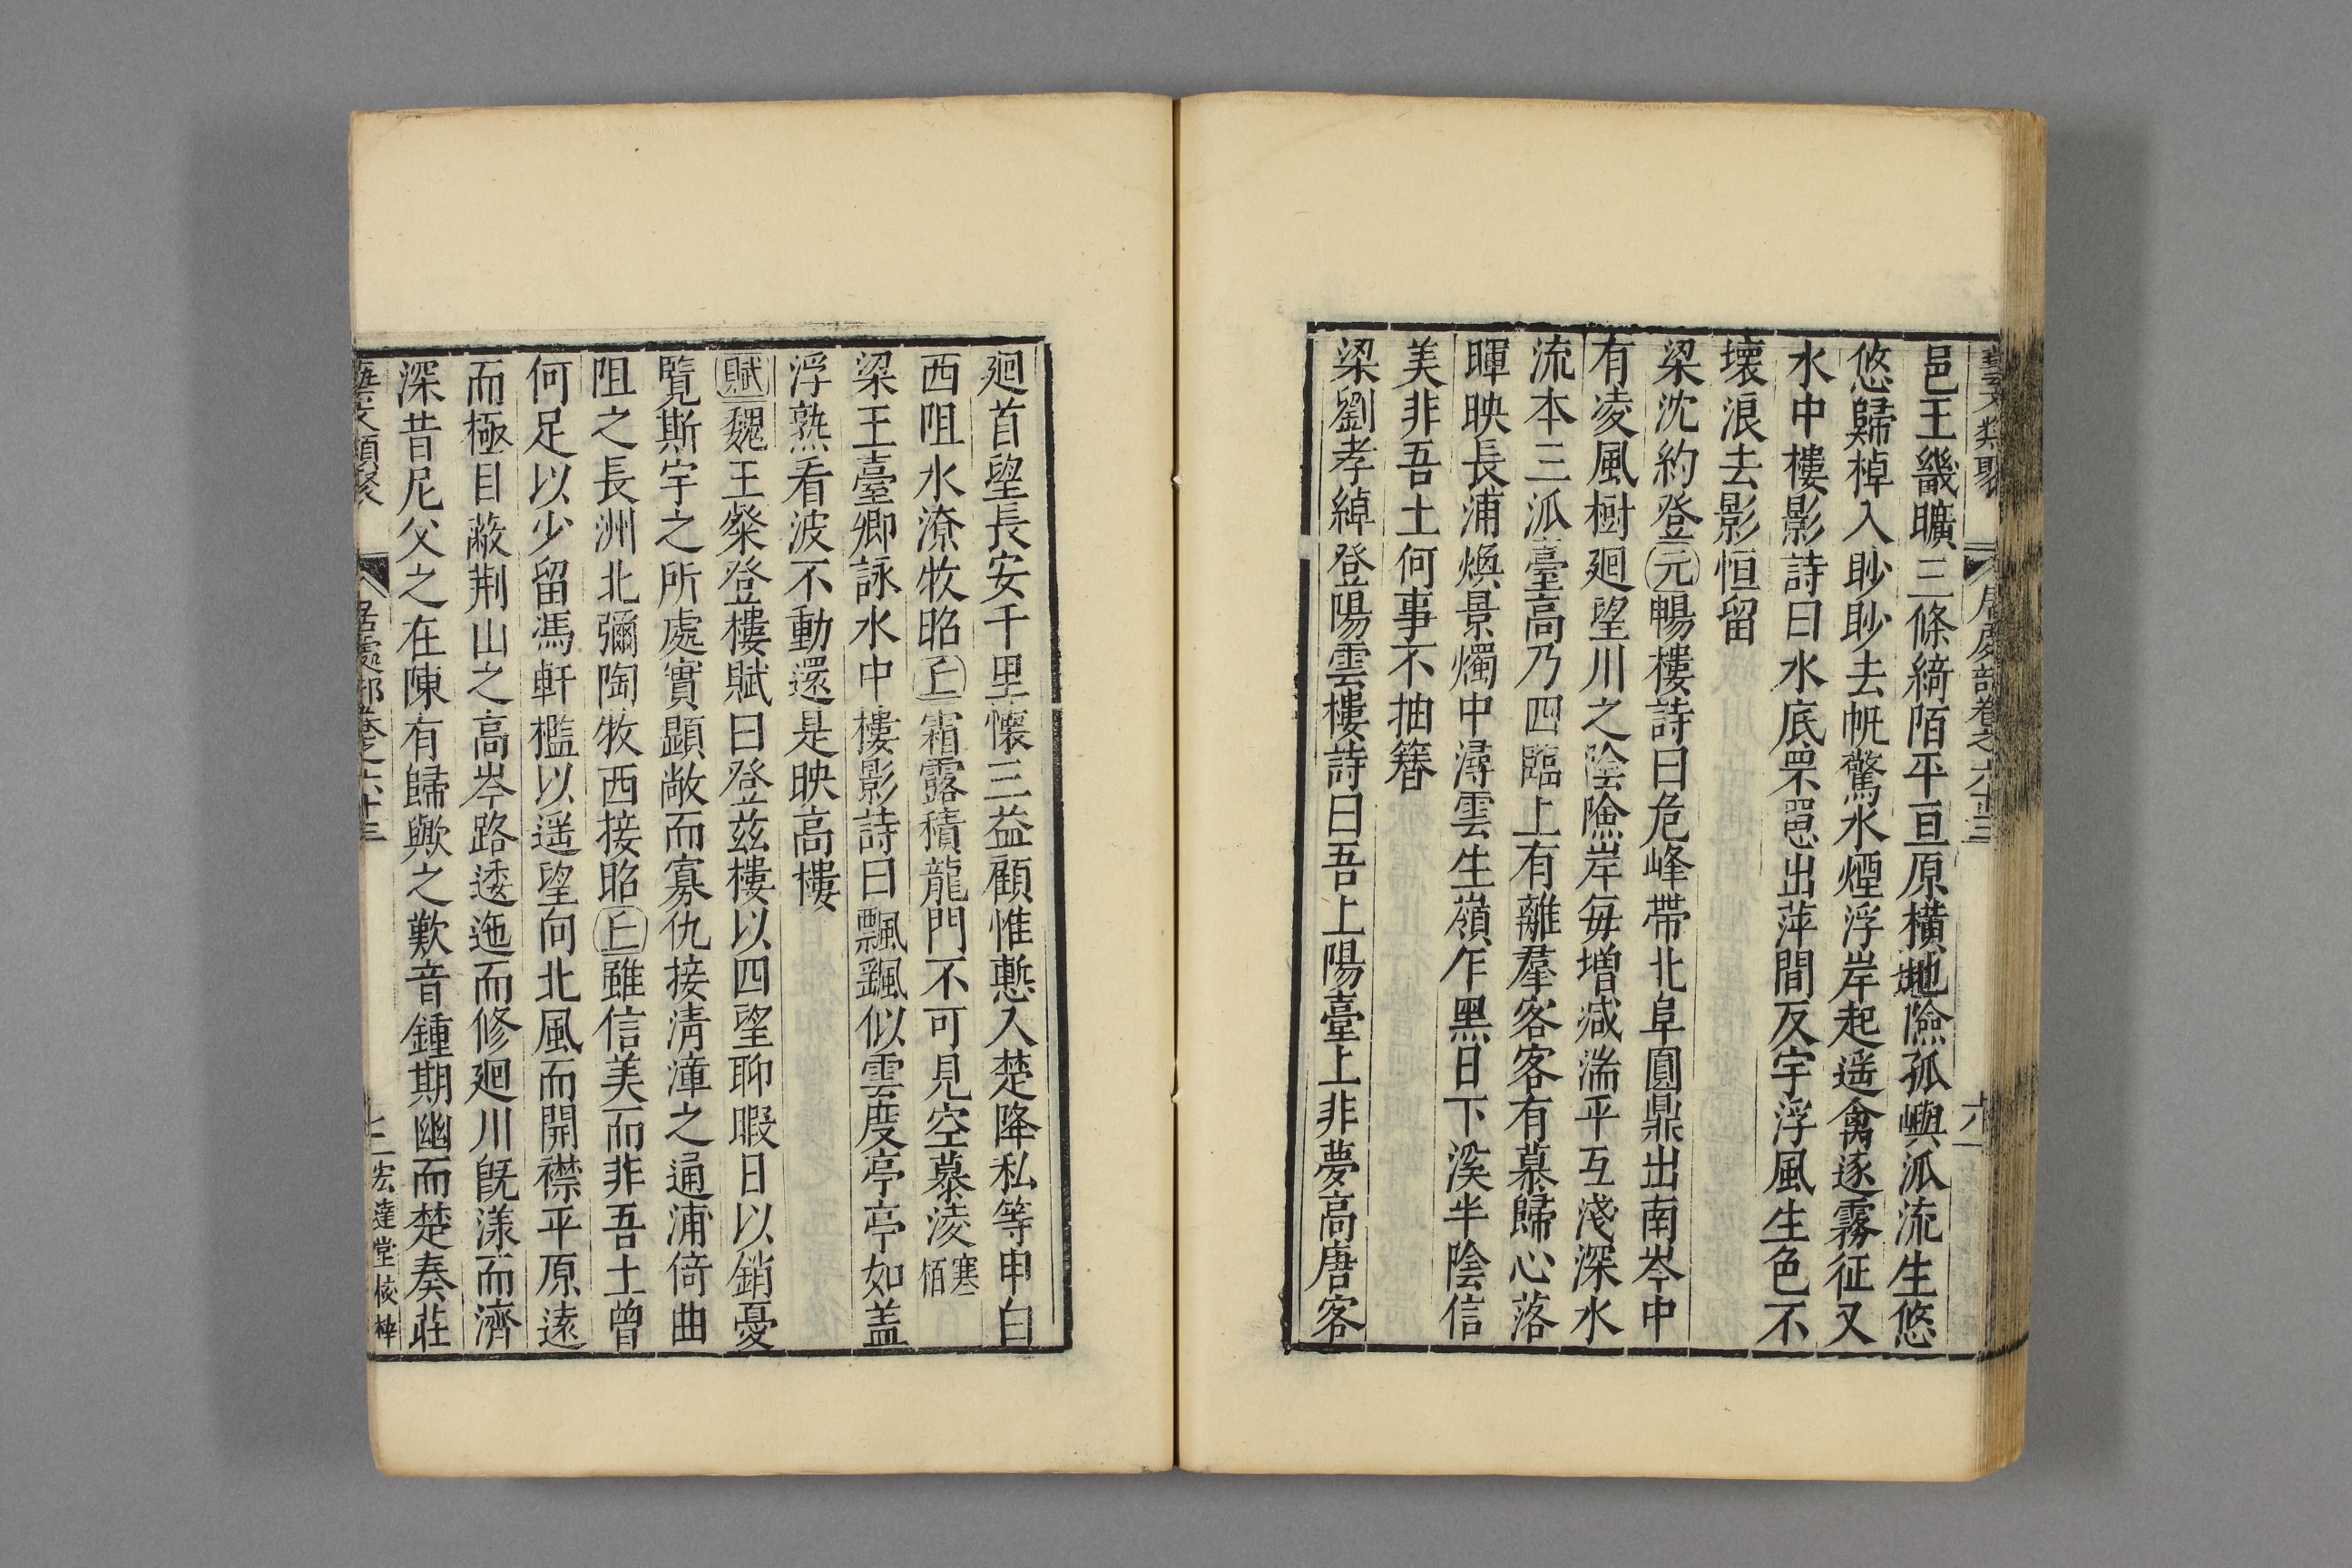 藝文類聚 居處部卷之六十三 六
邑王畿曠三條綺陌平亘原橫地險孤嶼泒流生悠
悠歸棹入眇眇去帆驚水煙浮岸起遥禽逐霧征又
水中樓影詩曰水底罘罳出萍間反宇浮風生色不
壞浪去影恒留
梁沈約登元暢樓詩曰危峰帶北阜圓鼎出南岑中
有凌風樹廻望川之陰險岸每増減湍平互淺深水
流本三泒臺高乃四臨上有離羣客客有慕歸心落
暉映長浦煥景燭中潯雲生嶺乍黑日下溪半陰信
美非吾土何事不抽簪
梁劉孝綽登陽雲樓詩曰吾上陽臺上非夢高唐客
廻首望長安千里懷三益顧惟慙入楚降私等申白
西阻水潦牧昭丘霜露積龍門不可見空慕淩寒栢
梁王臺卿詠水中樓影詩曰飄颻似雲度亭亭如盖
浮熟看波不動還是映高樓
賦魏王粲登樓賦曰登茲樓以四望聊暇日以銷憂
覽斯宇之所處實顯敞而寡仇接淸漳之通浦倚曲
阻之長洲北彌陶牧西接昭丘雖信美而非吾土曾
何足以少留馮軒檻以遥望向北風而開襟平原遠
而極目蔽荆山之高岑路逶迤而修廻川旣漾而濟
深昔尼父之在陳有歸歟之歎音鍾期幽而楚奏莊
藝文類聚 居處部卷之六十三 七 宏達堂校梓